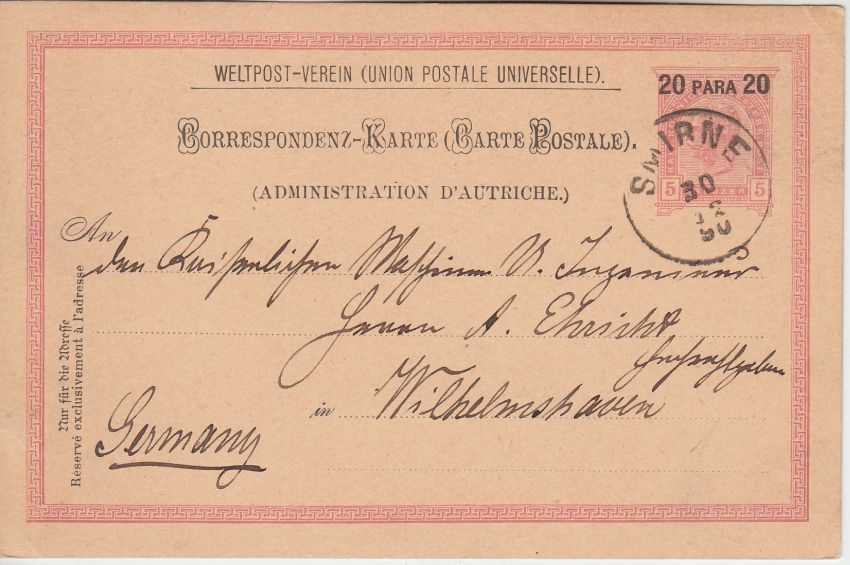 WELTPOST-VEREIN (UNION POSTALE UNIVERSELLE).
20 PARA 20
CORRESPONDENZ-KARTE (CARTE POSTALE).
SMIRNE
30
5 5
(ADMINISTRATION D'AUTRICHE.)
An
den Kaiserlichen Maschinen U. Ingenieur
Herrn A. Ehricht
in Wilhelmshaven
Germany
Nur für die Adresse
Réservé exclusivement à l'adresse